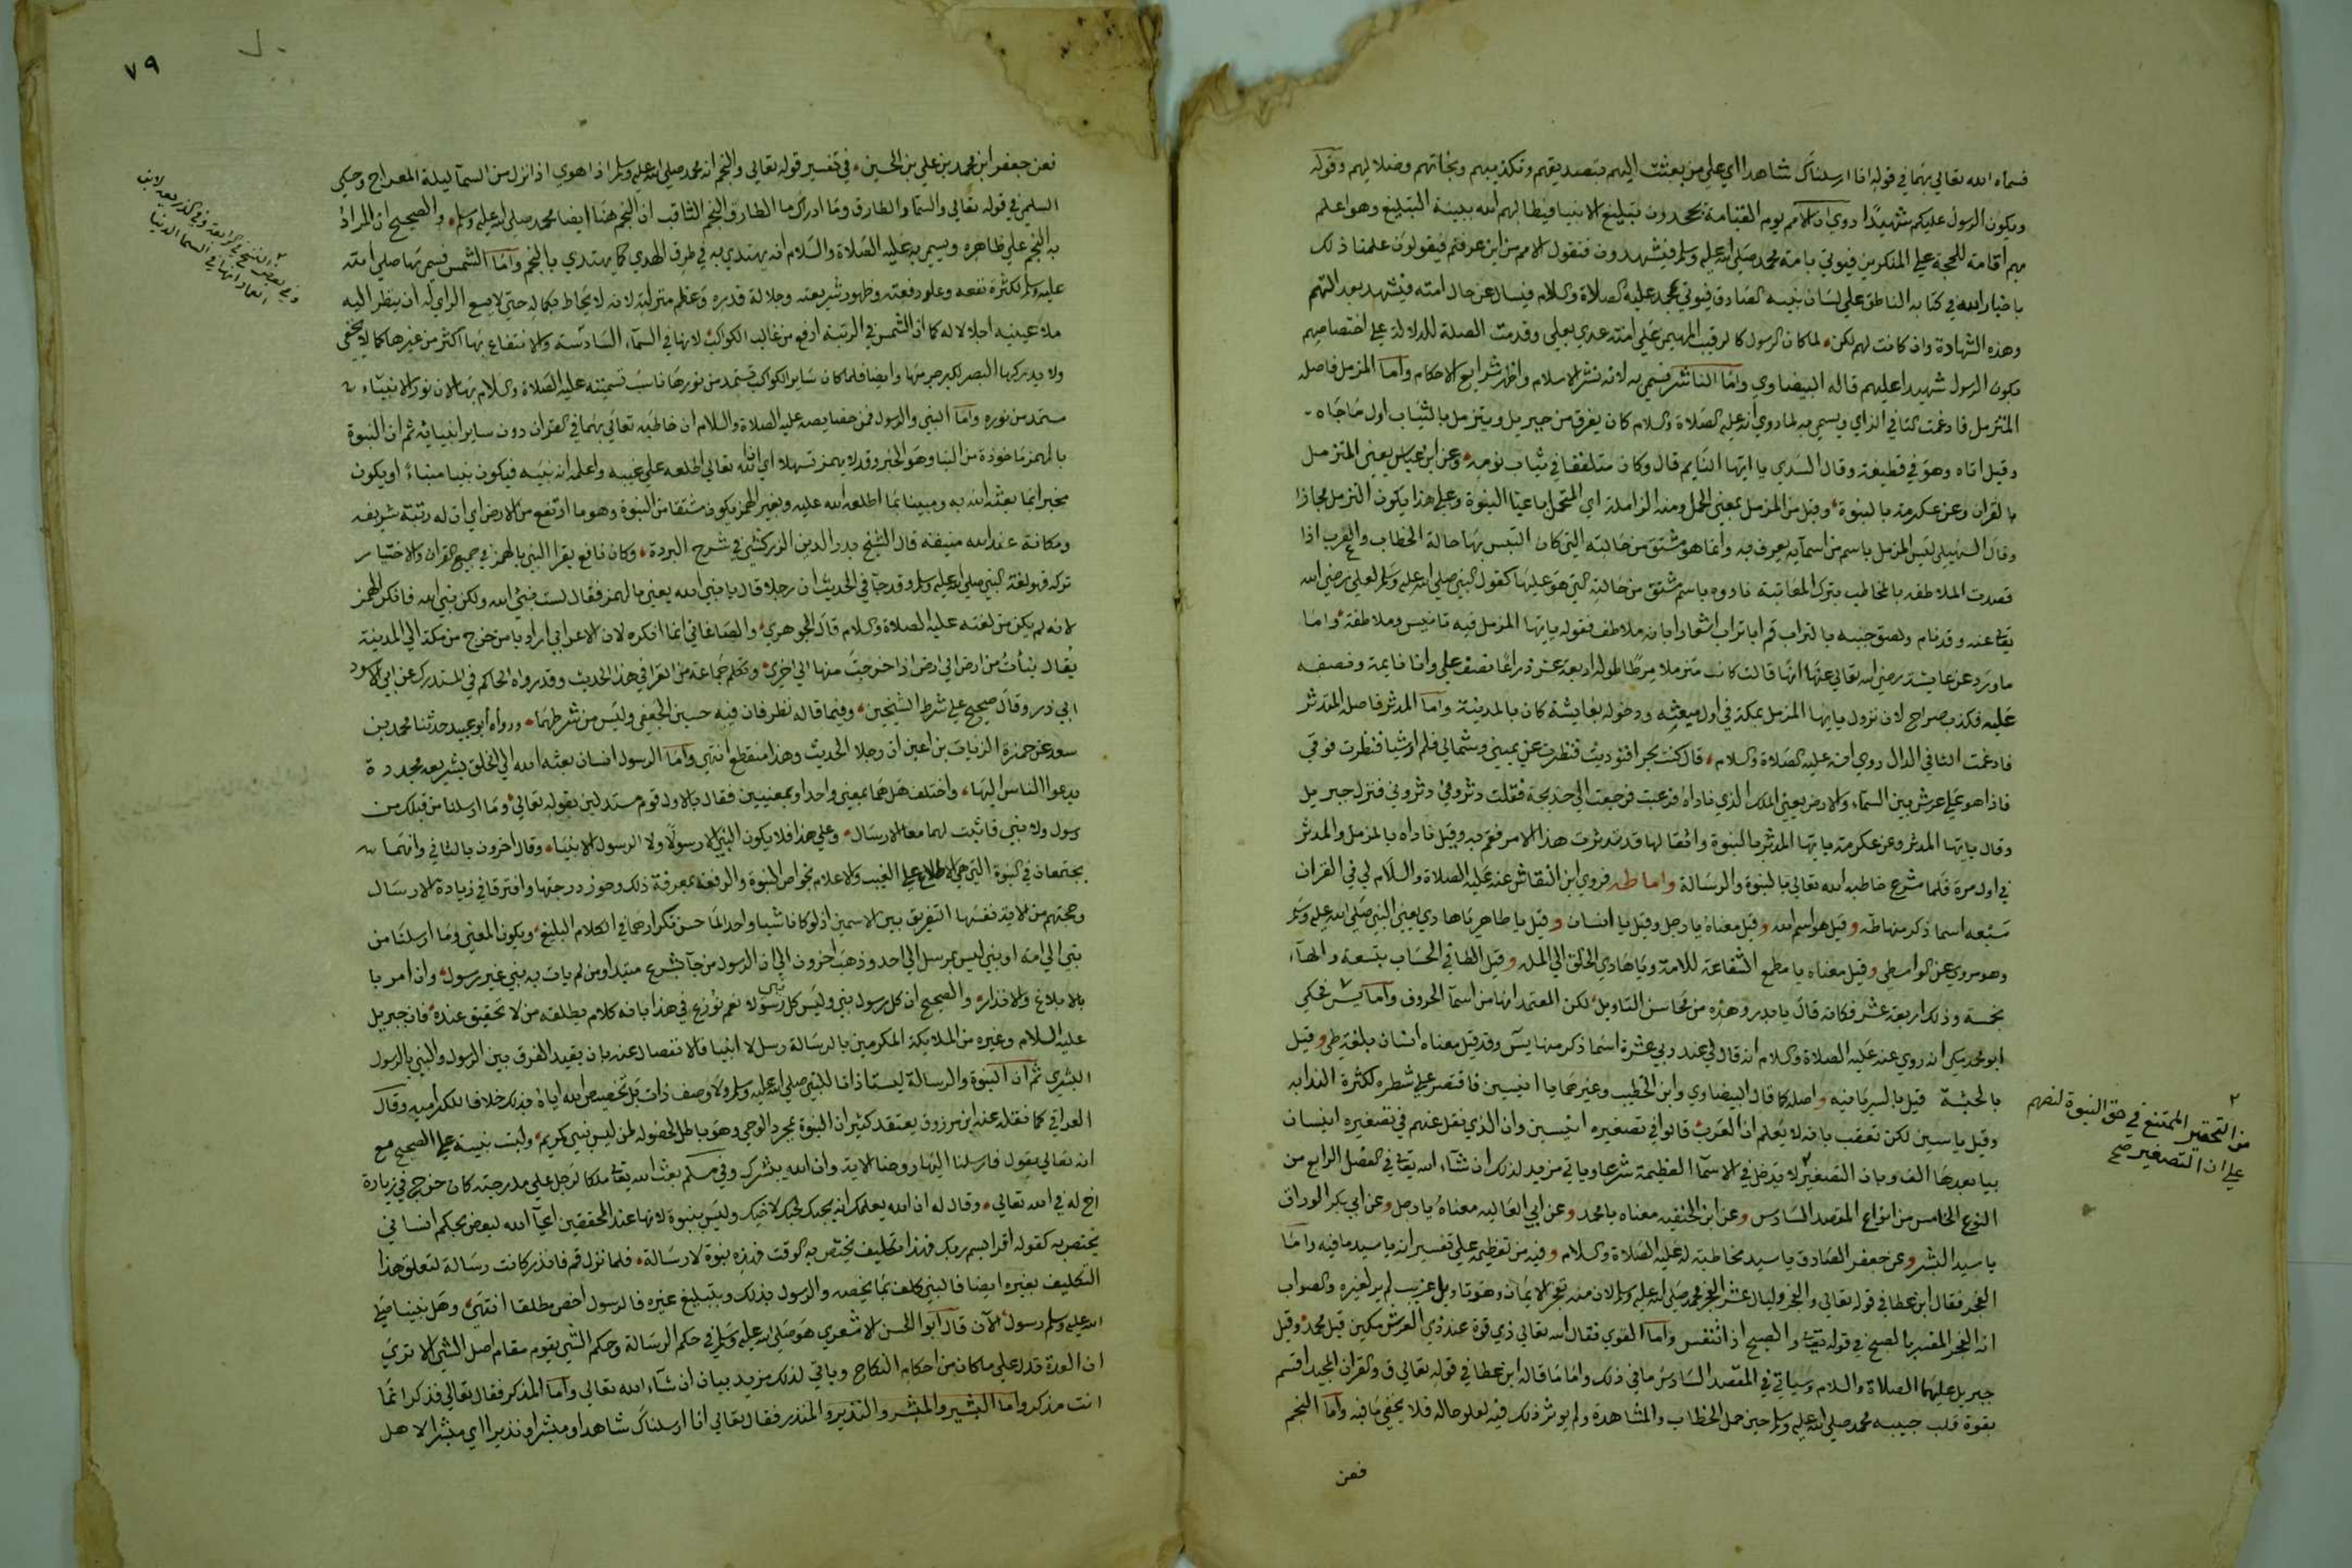 فسماه الله تعالى بهما في قوله انا ارسلناك شاهدا اي على من بعثت اليهم بتصديقهم وتكذيبهم ونجاتهم وضلالهم وقوله
ويكون الرسول عليكم شهيدًا روي ان الامم يوم القيامة يجحدون تبليغ الانبيا فيطالبهم الله ببينة التبليغ وهو اعلم
بهم اقامة للحجة علي المنكرين فيوتي بامة محمد صلى الله عليه وسلم فيشهدون فتقول الامم من اين عرفتم فيقولون علمنا ذلك
باخبار الله في كتابه الناطق علي لسان نبيه الصادق فيوتي بمحمد عليه الصلاة والسلام فيسال عن حال امته فيشهد بعدالتهم
وهذه الشهادة وان كانت لهم لكن لما كان الرسول كالرقيب المهيمن علي امته عدي بعلي وقدمت الصلة للدلالة على اختصاصهم
بكون الرسول شهيدا عليهم قاله البيضاوي واما الناشر فسمي به لانه نشر الاسلام واظهر شرايع الاحكام واما المزمل فاصله
المتزمل فادغمت التا في الزاي وسمي به لما روي انه عليه الصلاة والسلام كان يفرق من جبريل ويتزمل بالثياب اول ما جاه
وقيل اتاه وهو في قطيفة وقال السدي يا ايها النايم قال وكان متلففا في ثياب نومه وعن ابن عباس يعني المتزمل
بالقران وعن عكرمة بالنبوة وقيل من الزمل بمعني الحمل ومنه الزاملة اي المتحمل باعبا النبوة وعلي هذا يكون التزمل مجازا
وقال السهيلي ليس المزمل باسم من اسمايه يعرف به وانما هو مشتق من حالته التي كان التبس بها حالة الخطاب والعرب اذا
قصدت الملاطفه بالمخاطب بترك المعاتبة نادوه باسم مشتق من حالته التي هو عليها كقول النبي صلى الله عليه وسلم لعلي رضي الله
تعا عنه وقد نام ولصق جنبه بالتراب قم ابا تراب اشعارا بانه ملاطف فقوله يا ايها المزمل فيه تانيس وملاطفة واما
ما ورد عن عايشة رضي الله تعالى عنها انها قالت كان متزملا مرطا طوله اربعة عشر ذراعا نصفه علي وانا نايمة ونصفه
عليه فكذب صراح لان نزول يا ايها المزمل بمكة في اول مبعثه ودخوله بعايشة كان بالمدينة واما المدثر فاصله المتدثر
فادغمت التا في الدال روي انه عليه الصلاة والسلام قال كنت بحرا فنوديت فنظرت عن يميني وشمالي فلم ار شيا فنظرت فوقي
فاذا هو علي عرش بين السماء والارض يعني الملك الذي ناداه فرعبت فرجعت الي خديجة فقلت دثروني دثروني فنزل جبريل
وقال يا ايها المدثر وعن عكرمة يا ايها المدثر بالنبوة واثقالها قد تدثرت هذا الامر فقم به وقيل ناداه بالمزمل والمدثر
في اول مرة فلما شرع خاطبه الله تعالى بالنبوة والرسالة واما طه فروي ابن النقاش عنه عليه الصلاة والسلام لي في القران
سبعة اسما ذكر منها طه وقيل هو اسم الله وقيل معناه يا رجل وقيل يا انسان وقيل يا طاهر يا هادي يعني النبي صلى الله عليه وسلم
وهو مروي عن الواسطي وقيل معناه يا مطمع الشفاعة للامة ويا هادي الخلق الي الملة وقيل الطا في الحساب بتسعة والهاء
بخمسة وذلك اربعة عشر فكانه قال يا بدر وهذه من محاسن التاويل لكن المعتمد انها من اسما الحروف واما يس فحكي
ابو محمد مكي انه روي عنه عليه الصلاة والسلام انه قال لي عند ربي عشرة اسما ذكر منها يس وقد قيل معناه انسان بلغة طي وقيل
بالحبشة قيل بالسريانيه واصله كما قال البيضاوي وابن الخطيب وغيرهما يا انيسين فاقتصر على شطره لكثرة الندا به
وقيل ياسين لكن تعقب بانه لا يعلم ان العرب قالوا في تصغيره انيسين وان الذي نقل عنهم في تصغيره انيسان
بيا بعدها الف وبان التصغير لا يدخل في الاسما العظيمة شرعا وياتي مزيد لذلك ان شاء الله تعا في الفصل الرابع من
النوع الخامس من انواع المقصد السادس وعن ابن الحنفيه معناه يا محمد وعن ابي العاليه معناه يا رجل وعن ابي بكر الوراق
يا سيد البشر وعن جعفر الصادق يا سيد مخاطبة له عليه الصلاة والسلام وفيه من تعظيمه علي تفسير انه يا سيد ما فيه واما
الفجر فقال ابن عطا في قوله تعالى والفجر وليال عشر الفجر محمد صلى الله عليه وسلم لان منه تفجر الايمان وهو تاويل غريب لم ير لغيره والصواب
انه الفجر المفسر بالصبح في قوله تعا والصبح اذا تنفس واما القوي فقال الله تعالى ذي قوة عند ذي العرش مكين قيل محمد وقيل
جبريل عليهما الصلاة والسلام وسياتي في المقصد السادس ما في ذلك واما ما قاله ابن عطا في قوله تعالى ق والقران المجيد اقسم
بقوة قلب حبيبه محمد صلى الله عليه وسلم حين حمل الخطاب والمشاهدة ولم يوثر ذلك فيه لعلو حاله فلا يخفي ما فيه واما النجم
فعن
٢
من التحقير الممتنع في حق النبوة لنصهم
علي ان التصغير صح
٧٩
فعن جعفر ابن محمد بن علي بن الحسين في تفسير قوله تعالى والنجم انه محمد صلى الله عليه وسلم اذا هوي اذا نزل من السما ليلة المعراج وحكي
السلمي في قوله تعالى والسما والطارق وما ادراك ما الطارق النجم الثاقب ان النجم هنا ايضا محمد صلى الله عليه وسلم والصحيح ان المراد
به النجم علي ظاهره وسمي به عليه الصلاة والسلام انه يهتدي به في طرق الهدي كما يهتدي بالنجم واما الشمس فسمي بها صلى الله
عليه وسلم لكثرة نفعه وعلو رفعته وظهور شريعته وجلالة قدره وعظم منزلته لانه لا يحاط بكماله حتي لا يسع الراي له ان ينظر اليه
ملا عينيه اجلالا له كما ان الشمس في الرتبة ارفع من غالب الكواكب لانها في السماء السادسة والانتفاع بها اكثر من غيرها كما لا يخفي
ولا يدركها البصر لكبر جرمها وايضا فلما كان ساير الكواكب تستمد من نورها ناسب تسميته عليه الصلاة والسلام بها لان نور الانبياء
مستمد من نوره واما النبي والرسول فمن خصايصه عليه الصلاة والسلام ان خاطبه تعالى بهما في القران دون ساير انبيايه ثم ان النبوة
بالهمز ماخوذة من النبا وهو الخبر وقد لا يهمز تسهيلا اي ان الله تعالى اطلعه علي غيبه واعلمه انه نبيه فيكون نبيا منباء او يكون
مخبرا بما بعثه الله به ومبينا بما اطلعه الله عليه وبغير الهمز يكون مشتقا من النبوة وهو ما ارتفع من الارض اي ان له رتبة شريفه
ومكانة عند الله منيفه قال الشيخ بدر الدين الزركشي في شرح البردة وكان نافع يقرا النبي بالهمز في جميع القران والاختيار
تركه فهو لغة النبي صلى الله عليه وسلم وقد جا في الحديث ان رجلا قال يا نبيء الله يعني بالهمز فقال لست نبيء الله ولكن نبي الله فانكر الهمز
لانه لم يكن من لغته عليه الصلاة والسلام قال الجوهري والصاغاني انما انكره لان الاعرابي اراد يا من خرج من مكة الي المدينة
يقال نبأت من ارض الي ارض اذا خرجت منها الي اخري وتكلم جماعة من القرا في هذا الحديث وقد رواه الحاكم في المستدرك عن ابي الاسود
ابي ذر وقال صحيح على شرط الشيخين وفيما قاله نظر فان فيه حسين الجعفي وليس من شرطهما ورواه ابو عبيد حدثنا محمد بن
سعد عن حمزة الزيات بن اعين ان رجلا الحديث وهذا منقطع انتهي واما الرسول انسان بعثه الله الي الخلق بشريعه مجددة
يدعوا الناس اليها واختلف هل هما بمعني واحد او بمعنيين فقال بالاول قوم مستدلين بقوله تعالى وما ارسلنا من قبلك من
رسول ولا نبي فاثبت لهما معا الارسال وعلي هذا فلا يكون النبي الا رسولا ولا الرسول الا نبيا وقال اخرون بالثاني وانهما
يجتمعان في النبوة التي هي الاطلاع علي الغيب والاعلام بخواص النبوة والرفعة بمعرفة ذلك وحوز درجتها وافترقا في زيادة الارسال
وحجتهم من الاية نفسها التفريق بين الاسمين اذ لو كانا شيا واحدا لما حسن تكرارهما في الكلام البليغ ويكون المعني وما ارسلنا من
نبي الي امة او نبي ليس بمرسل الي احد وذهب اخرون الي ان الرسول من جا بشرع مبتدا ومن لم يات به نبي غير رسول وان امر با
بالابلاغ والانذار والصحيح ان كل رسول نبي وليس كل نبي رسولا نعم نوزع في هذا بانه كلام يطلقه من لا تحقيق عنده فان جبريل
عليه السلام وغيره من الملايكة المكرمين بالرسالة رسل لا انبيا فالانفصال عنه بان يقيد الفرق بين الرسول والنبي بالرسول
البشري ثم ان النبوة والرسالة ليستا ذاتا للنبي صلى الله عليه وسلم ولا وصف ذات بل تخصيص الله اياه بذلك خلافا للكراميه وقال
القرافي كما نقله عنه ابن مرزوق يعتقد كثير ان النبوة مجرد الوحي وهو باطل لحصوله لمن ليس بنبي كمريم وليست نبية على الصحيح مع
ان تعالى يقول فارسلنا اليها روحنا الاية وان الله يبشرك وفي مسلم بعث الله تعا ملكا لرجل علي مدرجته كان خرج في زيارة
اخ له في الله تعالى وقال له ان الله يعلمك انه يحبك لحبك لاخيك وليس بنبوة لانها عند المحققين ايحا الله لبعض بحكم انشائي
يختص به كقوله اقرا باسم ربك فهذا تكليف يختص به الوقت فهذه نبوة لا رسالة فلما نزل قم فانذر كانت رسالة لتعلق هذا
التكليف بغيره ايضا فالنبي كلف بما يخصه والرسول بذلك وبتبليغ غيره فالرسول اخص مطلقا انتهي وهل نبينا صلى
الله عليه وسلم رسول الآن قال ابو الحسن الاشعري هو صلى الله عليه وسلم في حكم الرسالة وحكم الشي يقوم مقام اصل الشي الا تري
ان العدة تدل علي ما كان من احكام النكاح وياتي لذلك مزيد بيان ان شاء الله تعالى واما المذكر فقال تعالى فذكر انما
انت مذكر واما البشير والمبشر والنذير والمنذر فقال تعالى انا ارسلناك شاهدا ومبشرا ونذيرا اي مبشرا لاهل